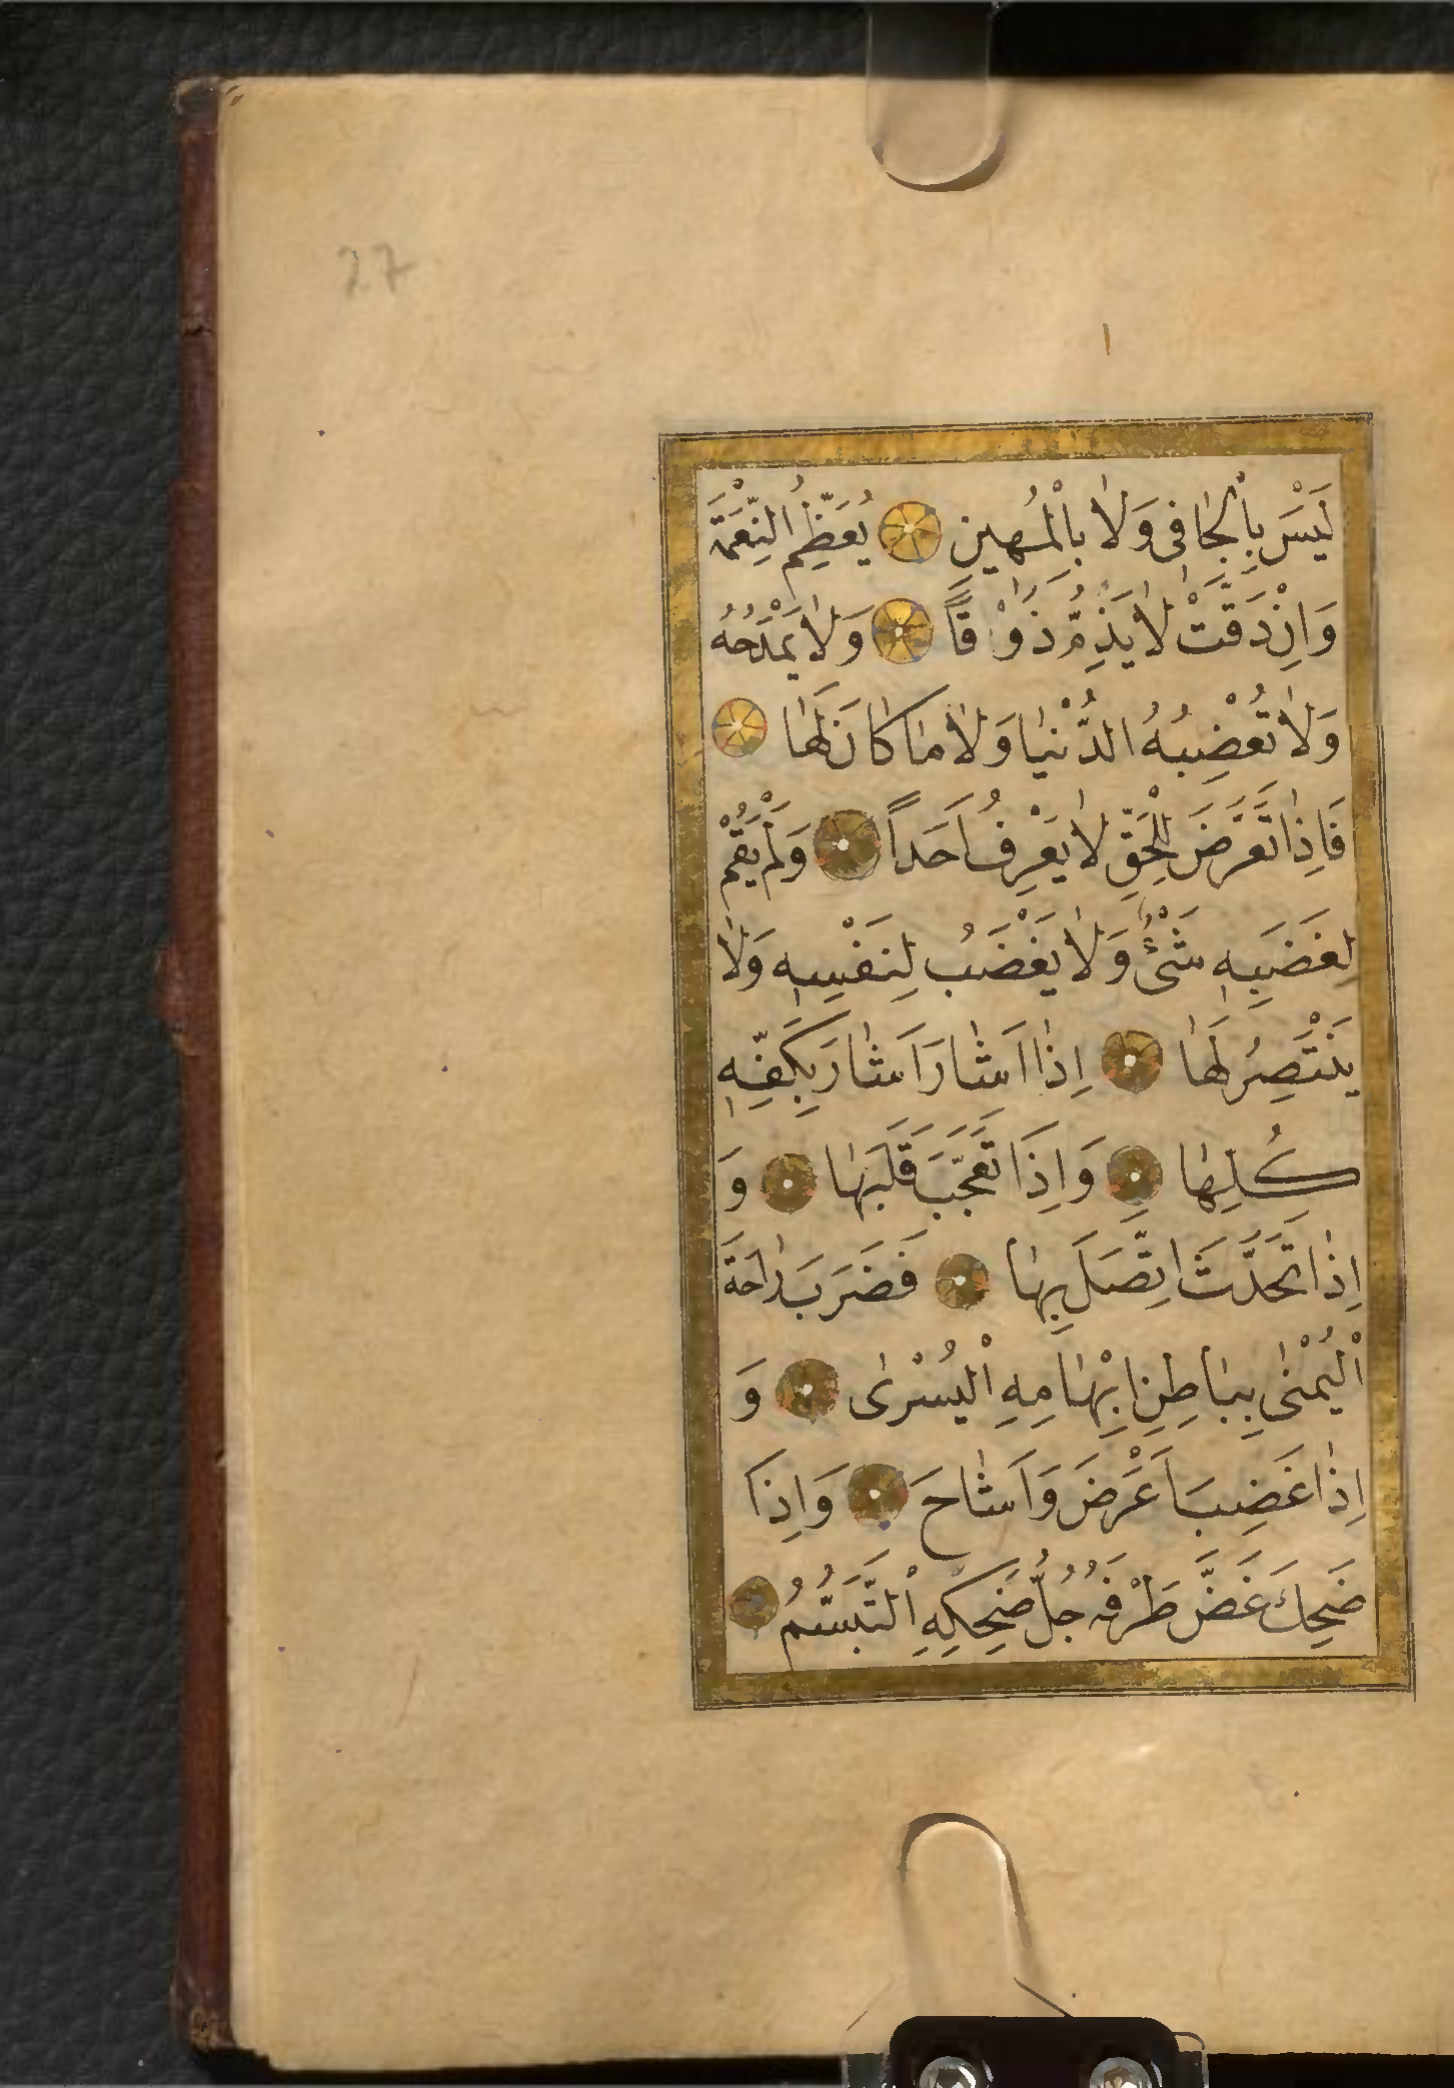 27
لَيْسَ بِالْجَافِى وَلَا بِالْمُهِينِ يُعَظِّمُ النِّعْمَةَ
وَاِنْ دَقَّتْ لَا يَذِمُّ ذَوَاقًا وَلَا يَمْدَحُهُ
وَلَا تُغْضِبُهُ الدُّنْيَا وَلَا مَا كَانَ لَهَا
فَاِذَا تَعَرَّضَ لِلْحَقِّ لَا يَعْرِفُ اَحَدًا وَلَمْ يَقُمْ
لِغَضَبِهِ شَىْءٌ وَلَا يَغْضَبُ لِنَفْسِهِ وَلَا
يَنْتَصِرُ لَهَا اِذَا اَشَارَ اَشَارَ بِكَفِّهِ
كُلِهَا وَاِذَا تَعَجَّبَ قَلَبَهَا وَ
اِذَا تَحَدَّثَ اِتَّصَلَ بِهَا فَضَرَبَ رَاحَةَ
اْليُمْنٰى بِبَاطِنِ اِبْهَامِهِ اْليُسْرٰى وَ
اِذَا غَضِبَ اَعْرَضَ وَاَشَاحَ وَاِذَا
ضَحِكَ غَضَّ طَرْفَهُ جُلُّ ضَحِكِهِ اْلتَّبَسُّمُ